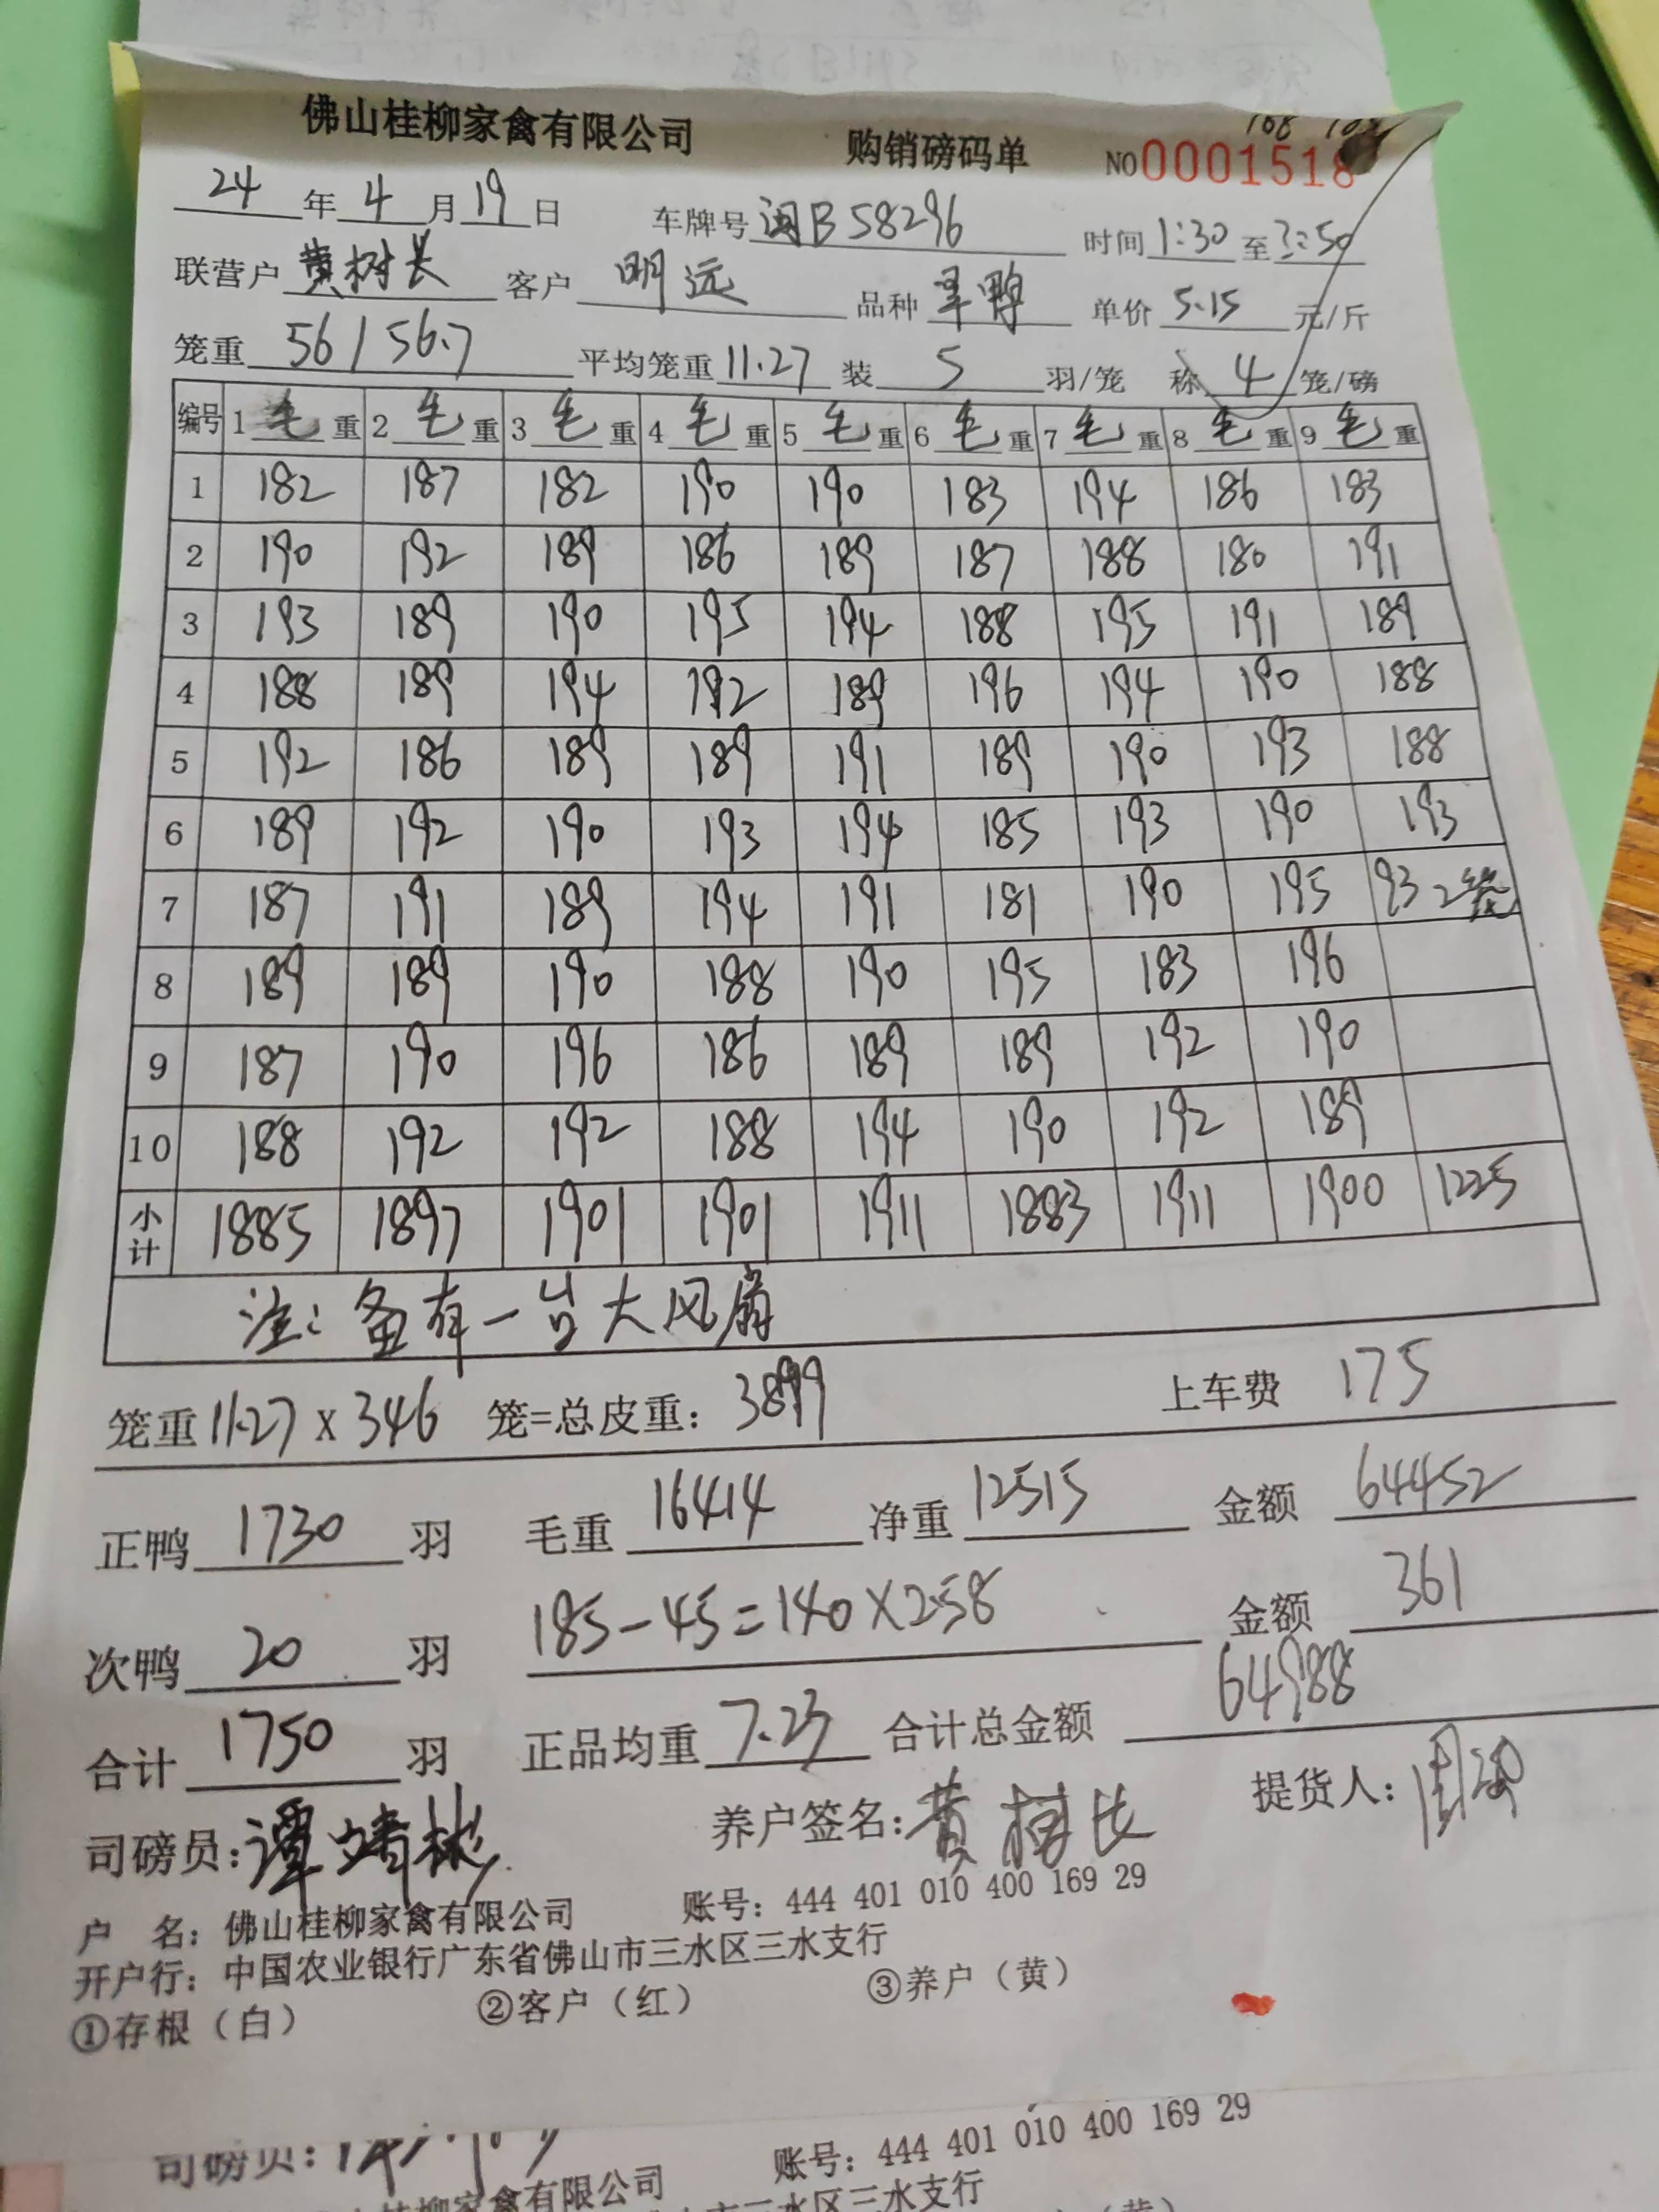 佛山桂柳家禽有限公司 购销磅码单 NO0001518
24年4月19日 车牌号闽B58296 时间1:30至3:50
联营户黄树长 客户明远 品种旱鸭 单价5.15元/斤
笼重56/56.7 平均笼重11.27 装5羽/笼 称4笼/磅
编号 1毛重 2毛重 3毛重 4毛重 5毛重 6毛重 7毛重 8毛重 9毛重
1 182 187 182 190 190 183 194 186 183
2 190 192 189 186 189 187 188 180 191
3 193 189 190 195 194 188 195 191 189
4 188 189 194 192 189 196 194 190 188
5 192 186 189 189 191 189 190 193 188
6 189 192 190 193 194 185 193 190 193
7 187 191 189 194 191 181 190 195 93 2笼
8 189 189 190 188 190 195 183 196
9 187 190 196 186 189 189 192 190
10 188 192 192 188 194 190 192 189
小计 1885 1897 1901 1901 1911 1883 1911 1900 1225
注：备有一台大风扇
笼重11.27x346 笼=总皮重：3899 上车费 175
正鸭1730羽 毛重16414净重12515 金额 64452
次鸭20羽 185-45=140×2.58 金额 361
合计1750羽 正品均重7.23合计总金额 64988
司磅员：谭靖彬 养户签名：黄树长 提货人：
户 名：佛山桂柳家禽有限公司 账号：444 401 010 400 169 29
开户行：中国农业银行广东省佛山市三水区三水支行
①存根（白） ②客户（红） ③养户（黄）
司磅员： 账号：444 401 010 400 169 29
桂柳家禽有限公司 三水区三水支行